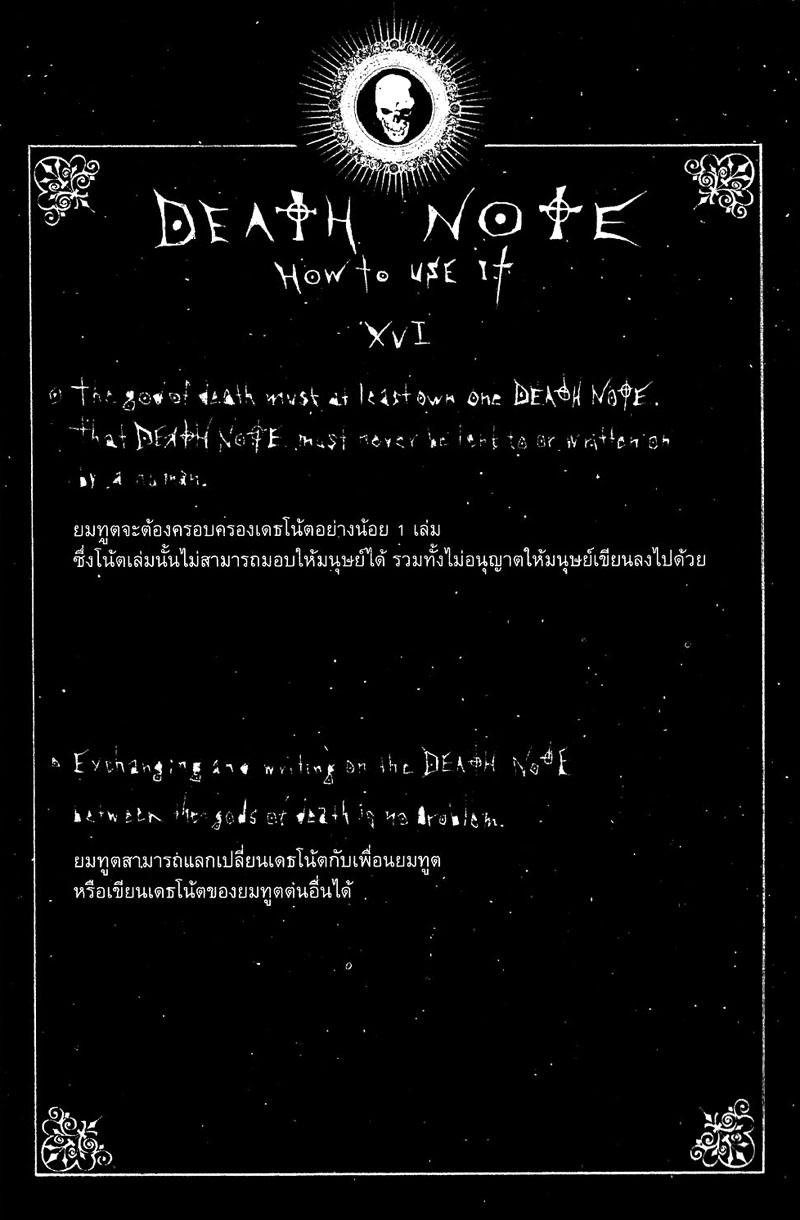 DEATH NOTE
HOW to USE It
XVI
The god of death must at least own one DEATH NOTE.
That DEATH NOTE must never be lent to or written on
by a human.
ยมทูตจะต้องครอบครองเดธโน้ตอย่างน้อย 1 เล่ม
ซึ่งโน้ตเล่มนั้นไม่สามารถมอบให้มนุษย์ได้ รวมทั้งไม่อนุญาตให้มนุษย์เขียนลงไปด้วย
Exchanging and writing on the DEATH NOTE
between the gods of death is no problem.
ยมทูตสามารถแลกเปลี่ยนเดธโน้ตกับเพื่อนยมทูต
หรือเขียนเดธโน้ตของยมทูตตนอื่นได้